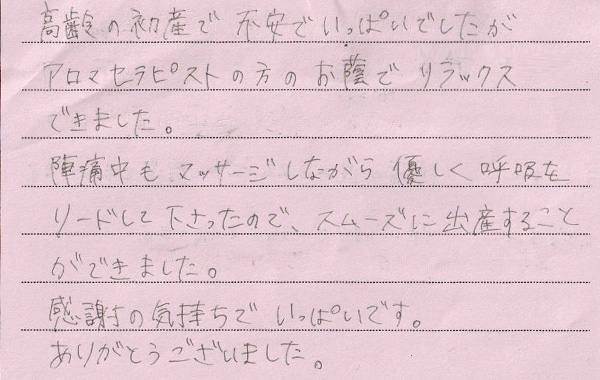 高齢の初産で 不安でいっぱいでしたが
アロマセラピストの方のお蔭で リラックス
できました。
陣痛中も マッサージしながら 優しく呼吸を
リードして下さったので、スムーズに出産すること
ができました。
感謝の気持ちで いっぱいです。
ありがとうございました。